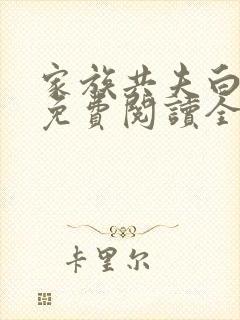 家族共夫白
免費閱讀全
卡里尔